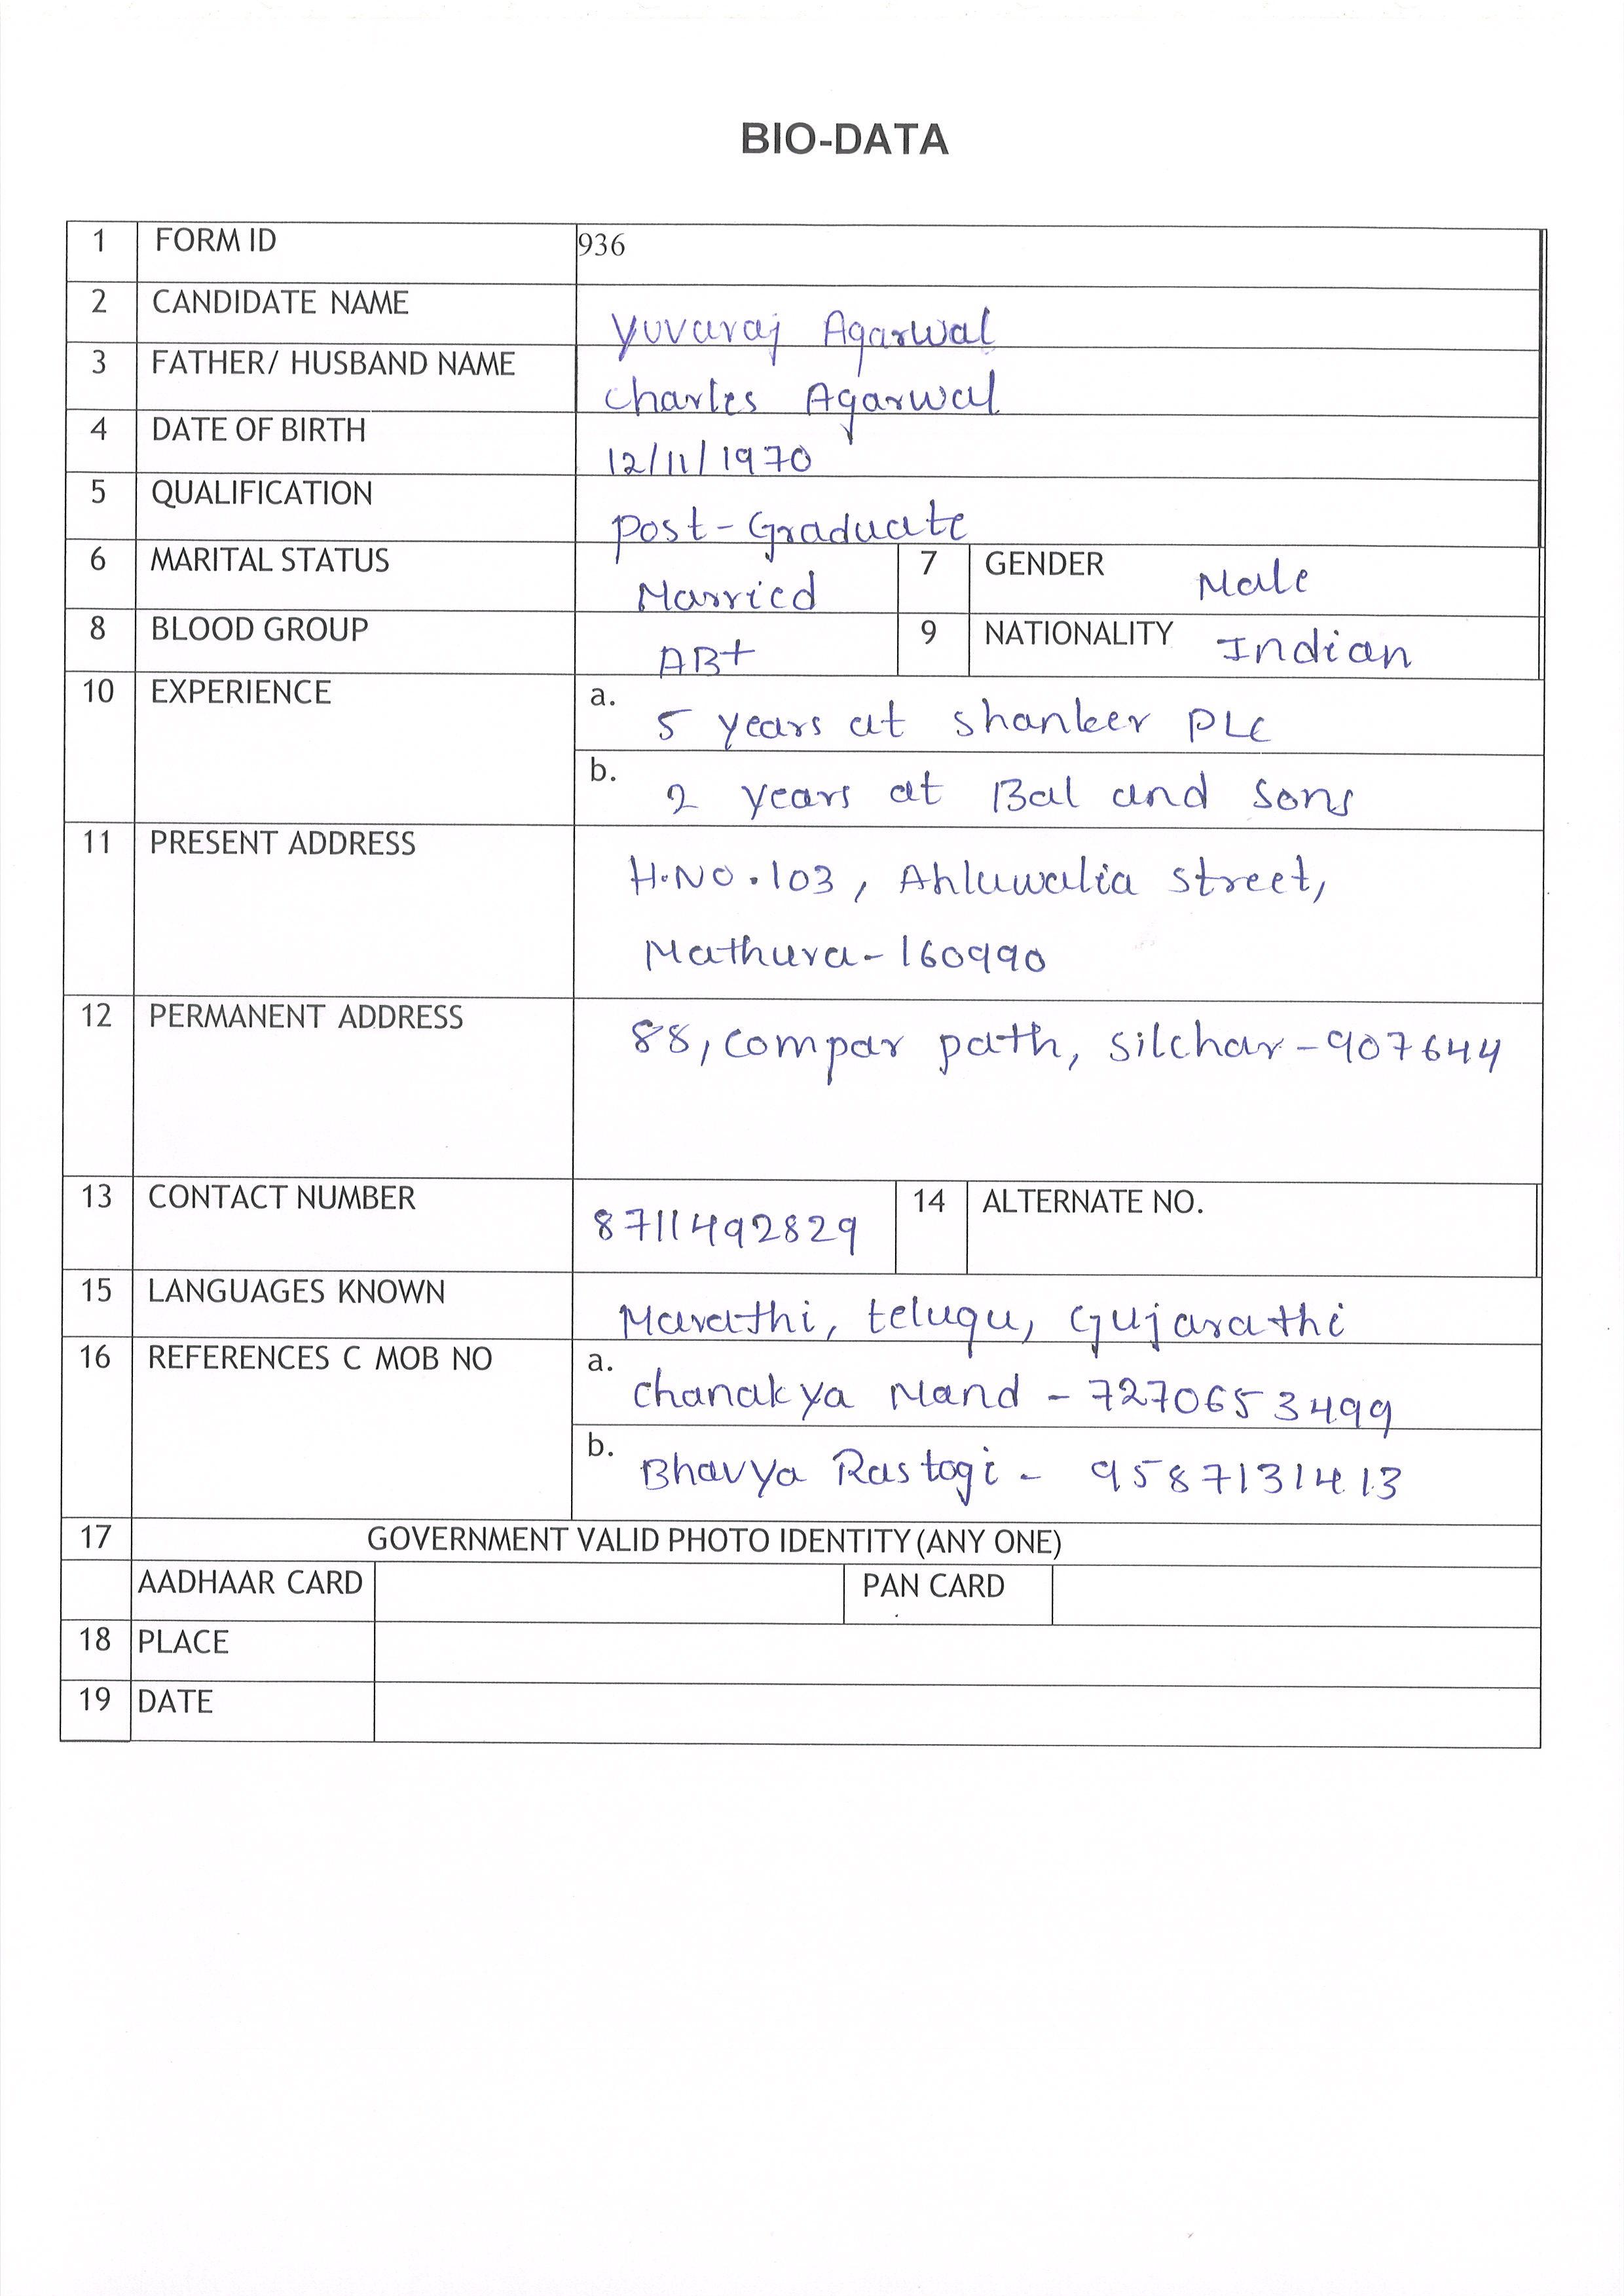 BIO-DATA
1 FORM ID 936
2 CANDIDATE NAME Yuvaraj Agarwal
3 FATHER/ HUSBAND NAME Charles Agarwal
4 DATE OF BIRTH 12/11/1970
5 QUALIFICATION Post-Graduate
6 MARITAL STATUS Married 7 GENDER Male
8 BLOOD GROUP AB+ 9 NATIONALITY Indian
10 EXPERIENCE a. 5 years at shanker PLC
b. 2 years at Bal and sons
11 PRESENT ADDRESS H.NO.103, Ahluwalia street,
Mathura-160990
12 PERMANENT ADDRESS 88, compar path, silchar-907644
13 CONTACT NUMBER 8711492829 14 ALTERNATE NO.
15 LANGUAGES KNOWN Marathi, telugu, Gujarathi
16 REFERENCES C MOB NO a. chanakya Mand - 7270653499
b. Bhavya Rastogi - 9587131413
17 GOVERNMENT VALID PHOTO IDENTITY (ANY ONE)
AADHAAR CARD PAN CARD
18 PLACE
19 DATE